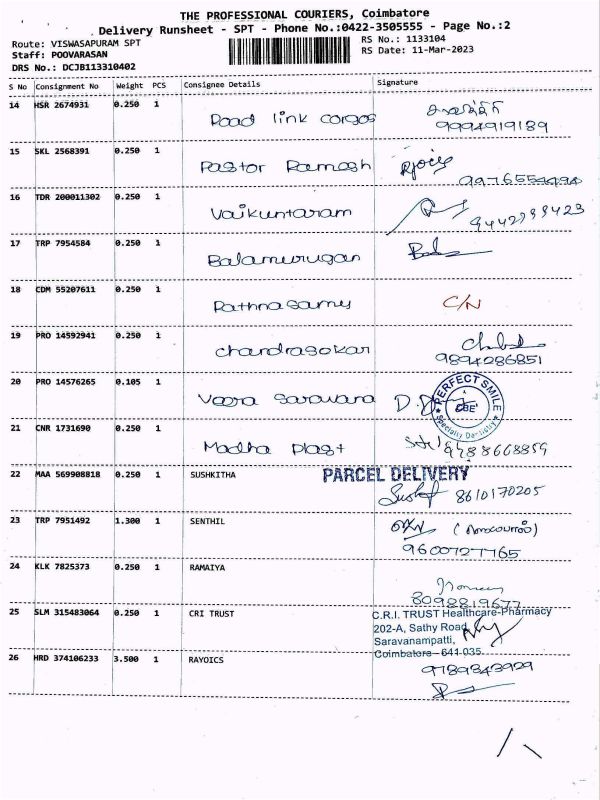 THE PROFESSIONAL COURIERS, Coimbatore
Delivery Runsheet - SPT - Phone No.:0422-3505555 - Page No.:2
Route: VISWASAPURAM SPT
RS No.: 1133104
Staff: POOVARASAN
RS Date: 11-Mar-2023
DRS No.: DCJB113310402
S No Consignment No Weight PCS Consignee Details Signature
14 HSR 2674931 0.250 1 Road link cargos
9994919189
15 SKL 2568391 0.250 1 Pastor Ramesh
9976554494
16 TDR 200011302 0.250 1 Vaikuntaram
9442999423
17 TRP 7954584 0.250 1 Balamurugan
18 CDM 55207611 0.250 1 Rathnasamy C/N
19 PRO 14592941 0.250 1 chandrasekar
9894286851
20 PRO 14576265 0.105 1 Veera Saravana
PERFECT SMILE
CBE
Specialty Dentistry
21 CNR 1731690 0.250 1 Madha Plast
9788668859
22 MAA 569908818 0.250 1 SUSHKITHA PARCEL DELIVERY
8610170205
23 TRP 7951492 1.300 1 SENTHIL
9600727765
24 KLK 7825373 0.250 1 RAMAIYA
8098819677
25 SLM 315483064 0.250 1 CRI TRUST C.R.I. TRUST Healthcare-Pharmacy
202-A, Sathy Road,
Saravanampatti,
Coimbatore - 641 035.
26 HRD 374106233 3.500 1 RAYOICS 9789343929